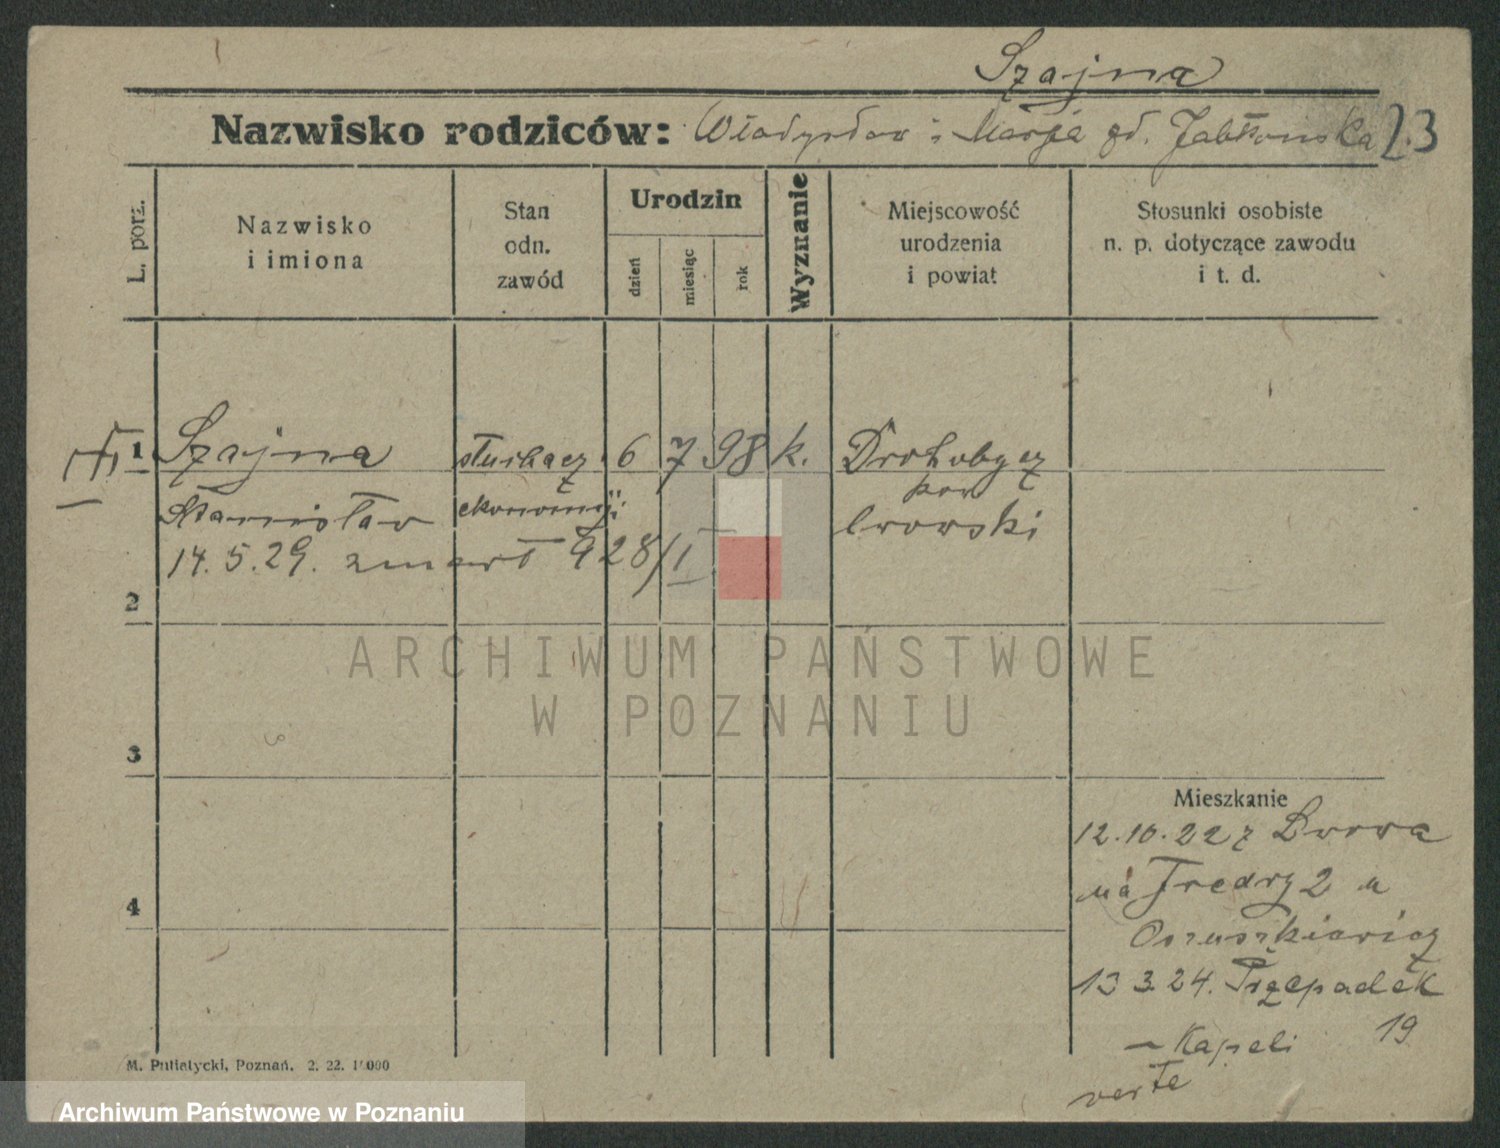 Szajna
Nazwisko rodziców: Władysław i Marja zd. Jabłońska 23
L. porz.
Nazwisko
i imiona
Stan
odn.
zawód
Urodzin
dzień
miesiąc
rok
Wyznanie
Miejscowość
urodzenia
i powiat
Stosunki osobiste
n. p. dotyczące zawodu
i t. d.
1 Szajna słuchacz 6 7 98 k. Drohobycz
Stanisław ekonomji pow
lwowski
14.5.29. zmarł 928/I
2
ARCHIWUM PAŃSTWOWE
W POZNANIU
3
Mieszkanie
12.10.22 z Lwowa
4
na Fredry 2 u
13 3 24. Przepadek
19
Kapeli
verte
M. Putiatycki, Poznań. 2. 22. 1000
Archiwum Państwowe w Poznaniu